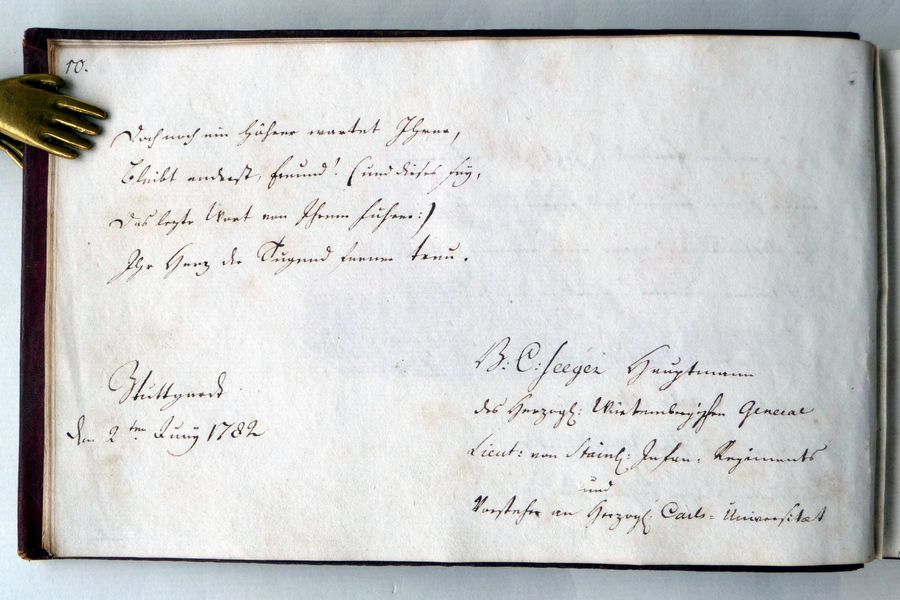 10.
Doch noch ein Höherer wartet Ihrer,
Bleibt anderst, Freund! (und dieses sey,
Das lezte Wort von Ihrem Führer:)
Ihr Herz der Tugend ferner treu.
Stuttgardt
den 2ten Juny 1782
B: C: Seeger Hauptmann
des Herzogl: Wirtembergischen General
Lieut: von Stainl: Infan: Regiments
und
Vorsteher an Herzogl: Carls-Universitæt